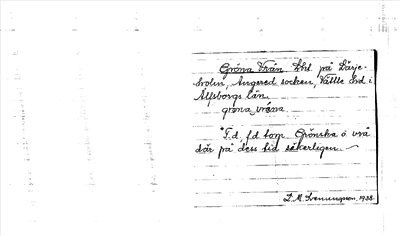 Gröna Vrån, Lht. på Lärje-
holm, Angered socken, Vättle hd i
Älfsborgs län.
grona vråna
*F.d. f.d torp. Grönska ö vrå
där på dess tid säkerligen.
D. M. Svenungson. 1933.